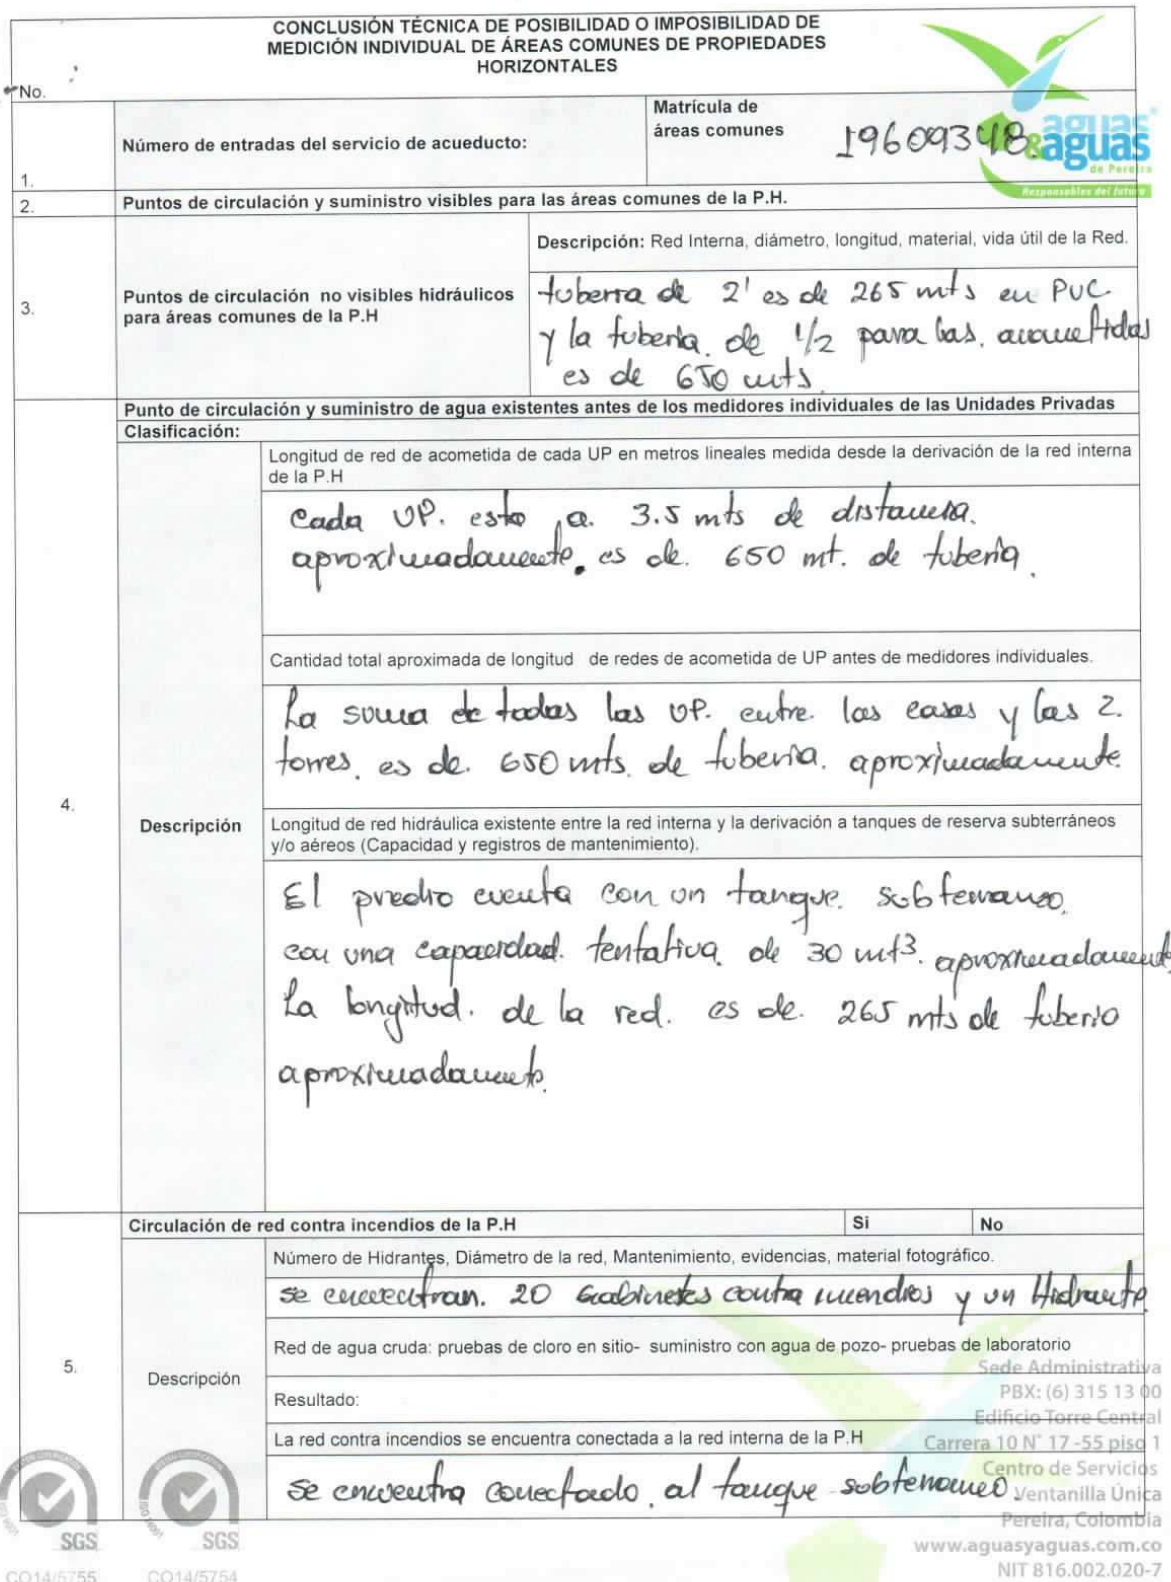 CONCLUSIÓN TÉCNICA DE POSIBILIDAD O IMPOSIBILIDAD DE
MEDICIÓN INDIVIDUAL DE ÁREAS COMUNES DE PROPIEDADES
HORIZONTALES
No.
aguas
&aguas
de Pereira
Responsables del futuro
1.
Número de entradas del servicio de acueducto:
Matrícula de
áreas comunes
19609348
2.
Puntos de circulación y suministro visibles para las áreas comunes de la P.H.
3.
Puntos de circulación no visibles hidráulicos
para áreas comunes de la P.H
Descripción: Red Interna, diámetro, longitud, material, vida útil de la Red.
tuberia de 2' es de 265 mts en PVC
y la tuberia. de 1/2 para las. acometidas
es de 650 mts.
4.
Punto de circulación y suministro de agua existentes antes de los medidores individuales de las Unidades Privadas
Clasificación:
Descripción
Longitud de red de acometida de cada UP en metros lineales medida desde la derivación de la red interna
de la P.H
Cada UP. esta a. 3.5 mts de distancia.
aproximadamente. es de. 650 mt. de tuberia.
Cantidad total aproximada de longitud de redes de acometida de UP antes de medidores individuales.
La suma de todas las UP. entre. las casas y las 2.
torres. es de. 650 mts. de tuberia. aproximadamente.
Longitud de red hidráulica existente entre la red interna y la derivación a tanques de reserva subterráneos
y/o aéreos (Capacidad y registros de mantenimiento).
El predio cuenta con un tanque. subterraneo.
con una capacidad. tentativa de 30 mt3. aproximadamente.
La longitud. de la red. es de. 265 mts de tuberia
aproximadamente.
5.
Circulación de red contra incendios de la P.H
Si
No
Descripción
Número de Hidrantes, Diámetro de la red, Mantenimiento, evidencias, material fotográfico.
se encuentran. 20 Gabinetes contra incendios y un Hidrante.
Red de agua cruda: pruebas de cloro en sitio- suministro con agua de pozo- pruebas de laboratorio
Resultado:
La red contra incendios se encuentra conectada a la red interna de la P.H
se encuentra conectado. al tanque subterraneo.
Sede Administrativa
PBX: (6) 315 13 00
Edificio Torre Central
Carrera 10 N° 17 -55 piso 1
Centro de Servicios
Ventanilla Única
Pereira, Colombia
www.aguasyaguas.com.co
NIT 816.002.020-7
SGS
CO14/5755
SGS
CO14/5754